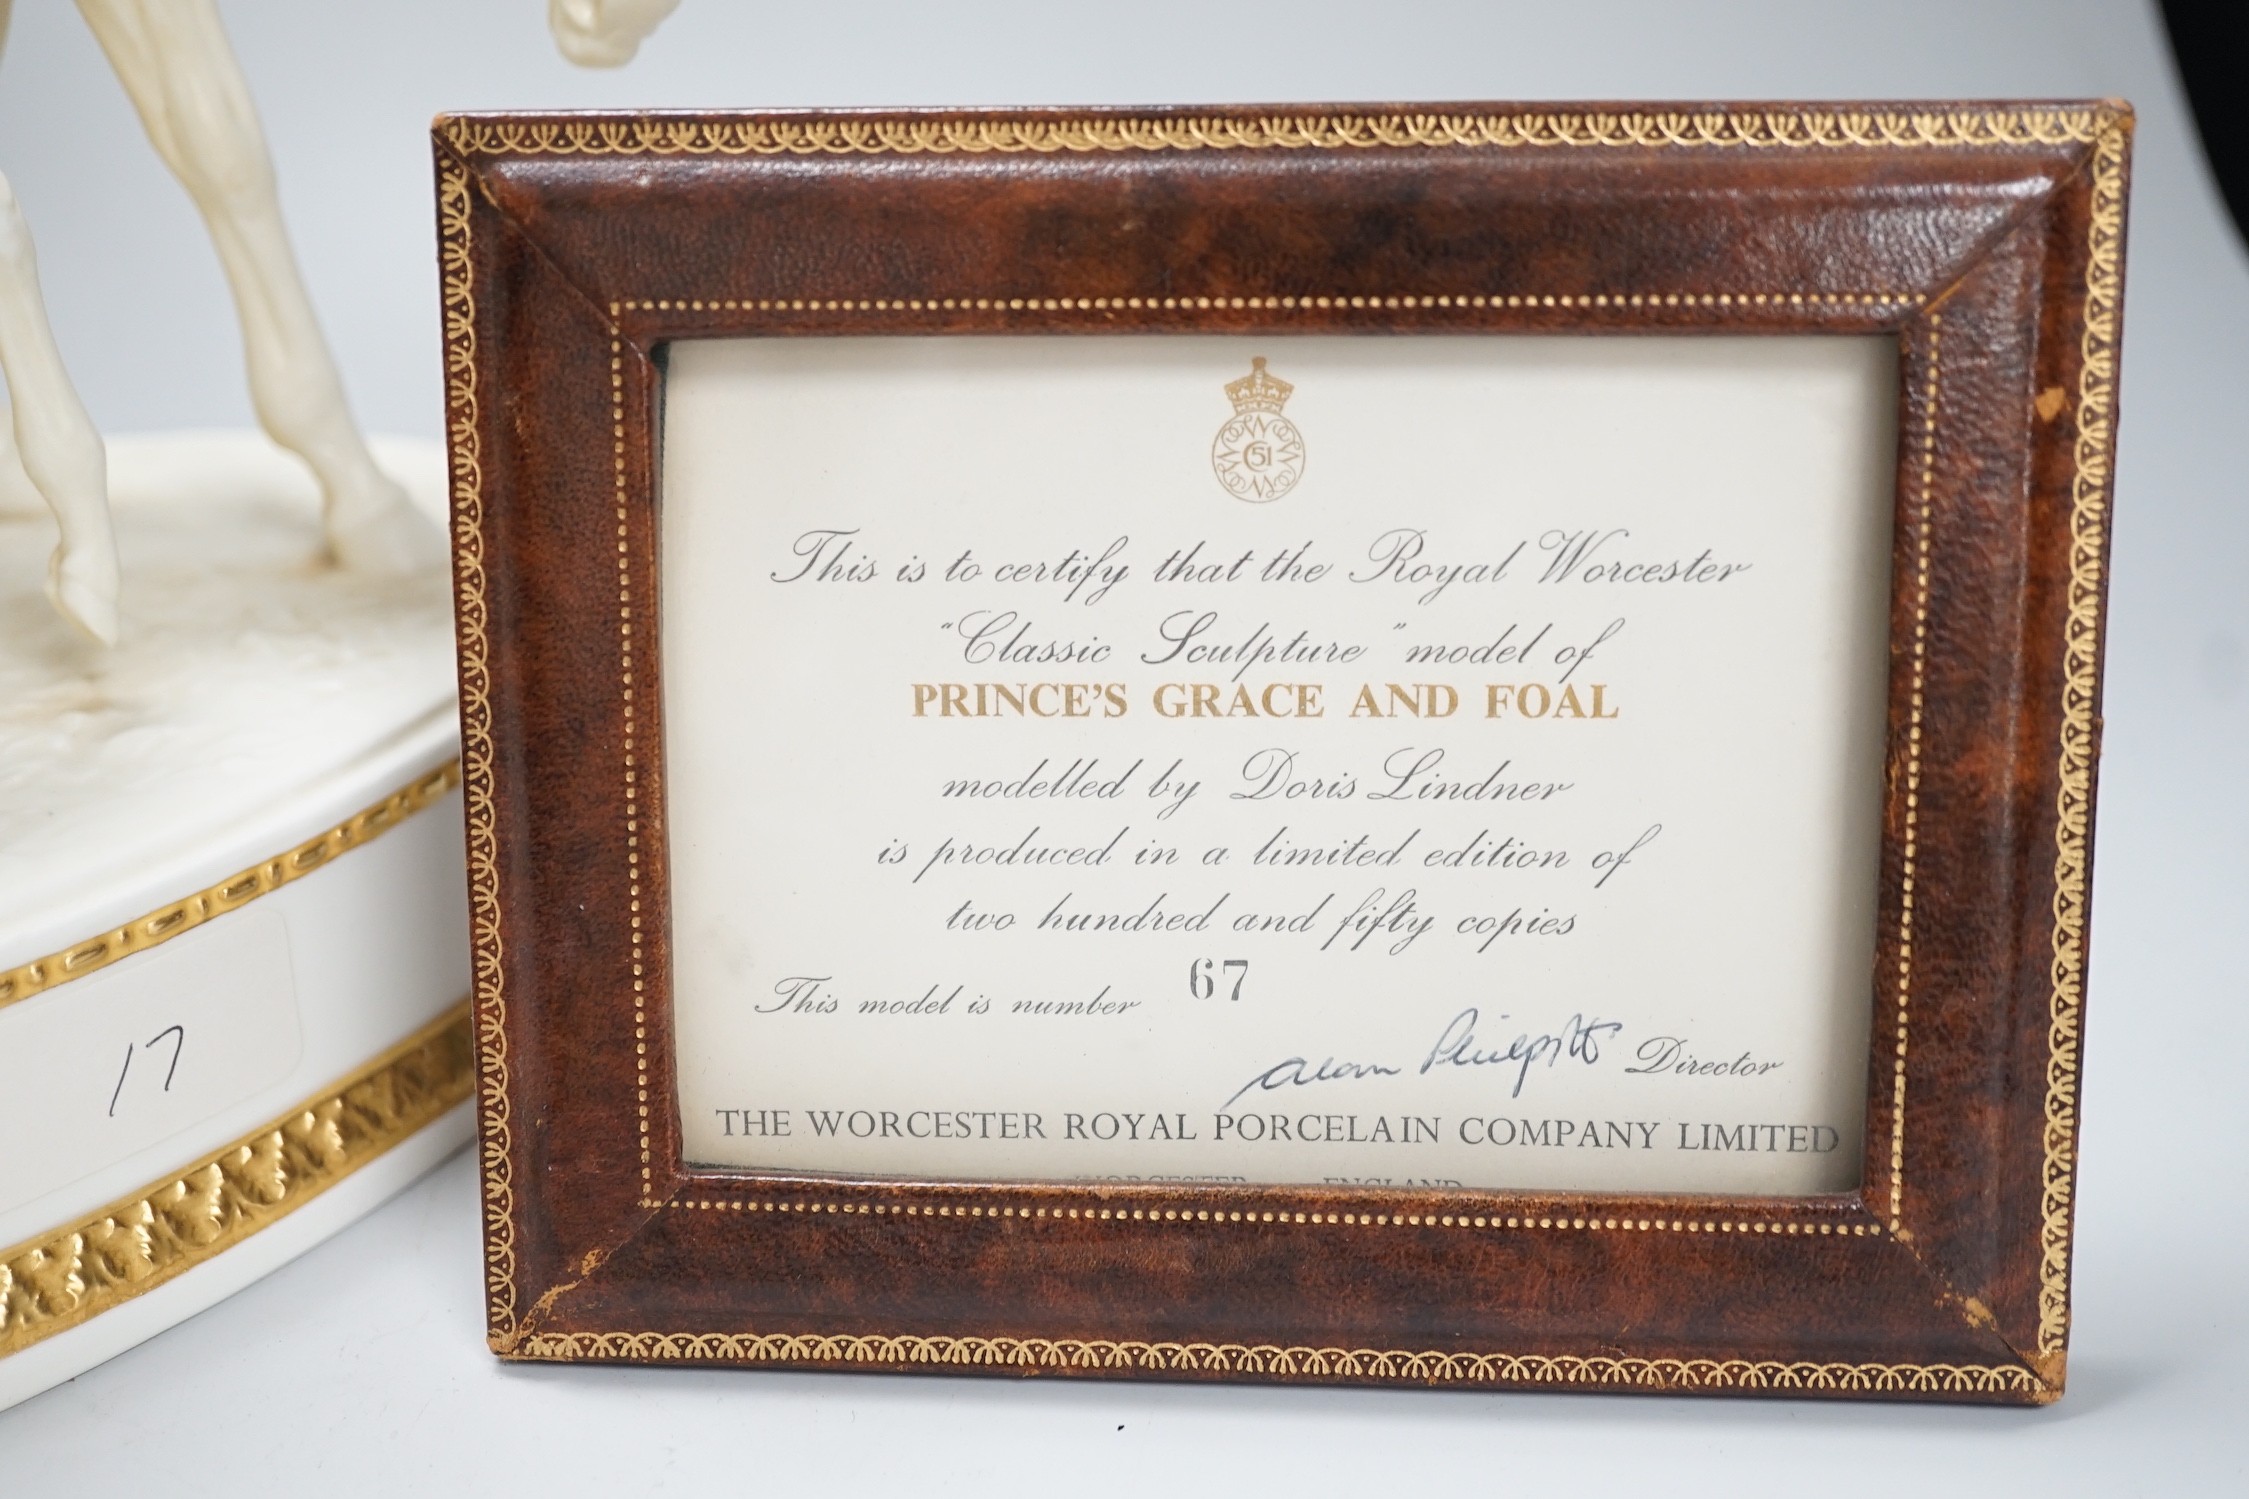 C51
This is to certify that the Royal Worcester
"Classic Sculpture" model of
PRINCE'S GRACE AND FOAL
modelled by Doris Lindner
is produced in a limited edition of
two hundred and fifty copies
This model is number 67
Director
THE WORCESTER ROYAL PORCELAIN COMPANY LIMITED
WORCESTER ENGLAND
17